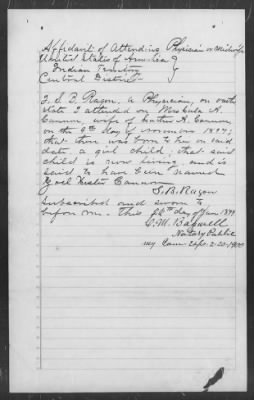 Affidavit of Attending Physician or Midwife
United States of America }
Indian Territory }
Central District }
I, S. B. Ragon, a Physician, on oath
state I attended on A.
Cannon, wife of A. Cannon
on the 9th day of November 1897;
that there was born to her on said
date, a girl child; that said
child is now living, and is
said to have been named
Hester Cannon
S. B. Ragon
Subscribed and sworn to
before me. This day of Jan 1899
C. M. Bagwell
Notary Public
my Com. Exps. 2-20-1900